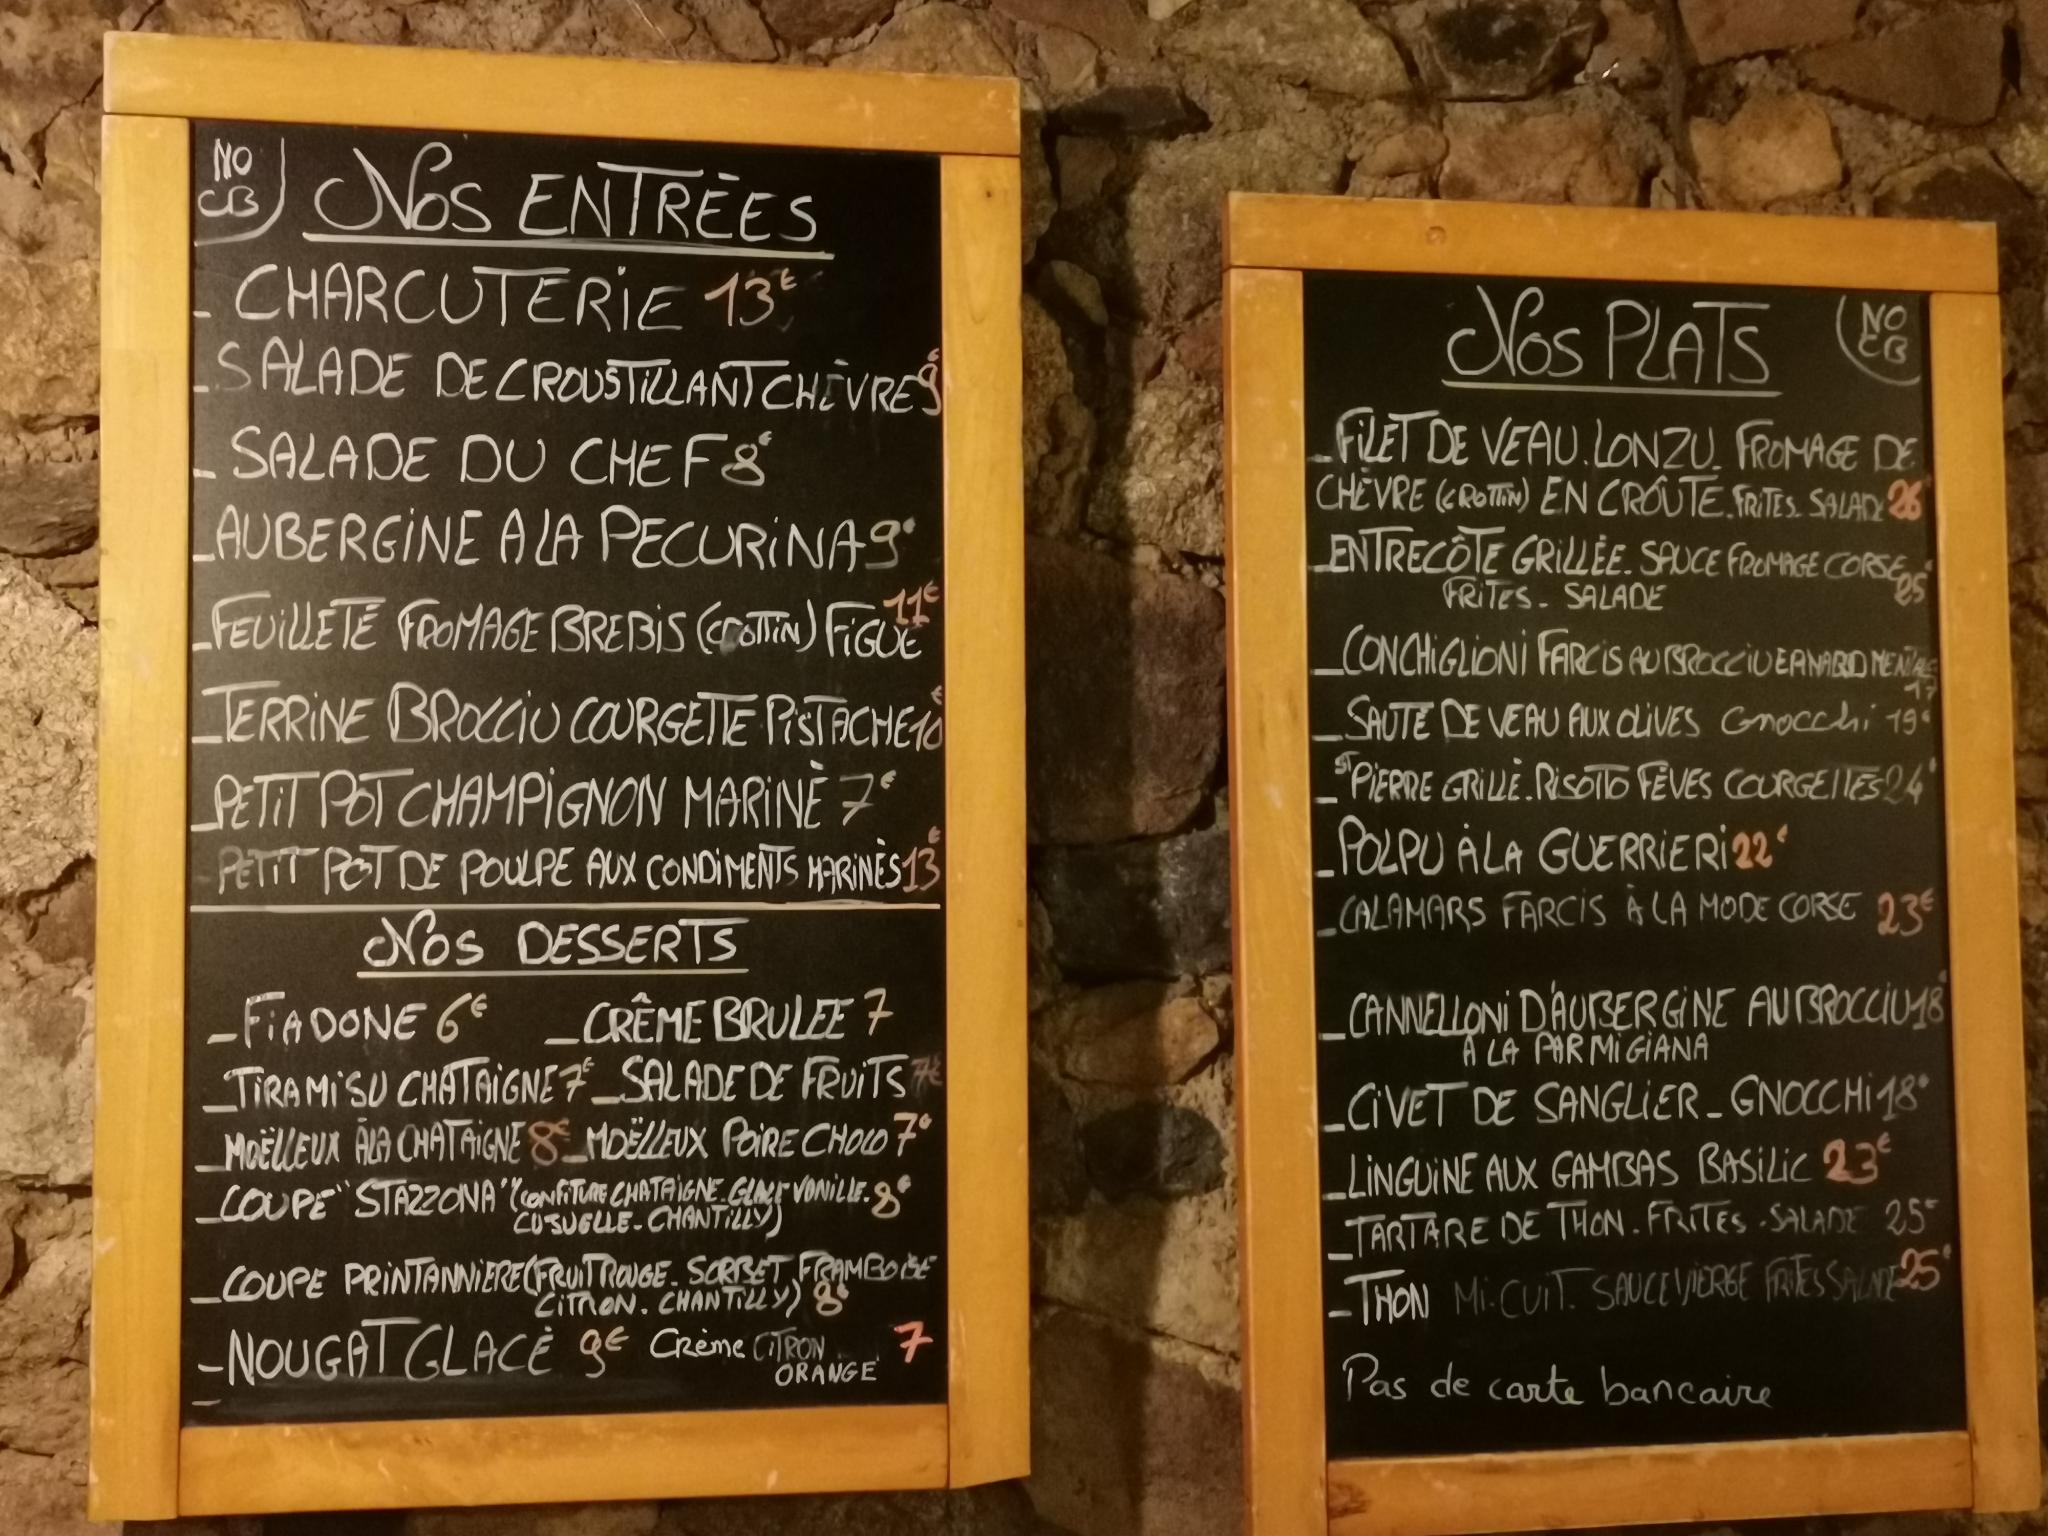 NO
CB
Nos ENTRÉES
_ CHARCUTERIE 13€
_ SALADE DE CROUSTILLANT CHÈVRE 9€
_ SALADE DU CHEF 8€
_ AUBERGINE A LA PECURINA 9€
_ FEUILLETÉ FROMAGE BREBIS (CROTTIN) FIGUE 11€
_ TERRINE BROCCIU COURGETTE PISTACHE 10€
_ PETIT POT CHAMPIGNON MARINÉ 7€
PETIT POT DE POULPE AUX CONDIMENTS MARINÉS 13€
Nos DESSERTS
_ FIADONE 6€ _ CRÊME BRULEE 7
_ TIRAMISU CHATAIGNE 7€ _ SALADE DE FRUITS 7€
_ MOËLLEUX À LA CHATAIGNE 8€ _ MOËLLEUX POIRE CHOCO 7€
_ COUPE "STAZZONA" (CONFITURE CHATAIGNE. GLACE VANILLE. 8€
CUSUELLE. CHANTILLY)
_ COUPE PRINTANNIERE (FRUIT ROUGE. SORBET FRAMBOISE
CITRON. CHANTILLY) 8€
_ NOUGAT GLACÉ 9€ Crème CITRON 7
ORANGE
Nos PLATS
NO
CB
_ FILET DE VEAU. LONZU. FROMAGE DE
CHÈVRE (CROTTIN) EN CROÛTE. FRITES. SALADE 26
_ ENTRECÔTE GRILLÉE. SAUCE FROMAGE CORSE
FRITES - SALADE 25€
_ CONCHIGLIONI FARCIS AU BROCCIU
17
_ SAUTE DE VEAU AUX OLIVES Gnocchi 19€
_ ST PIERRE GRILLÉ. RISOTTO FÈVES COURGETTES 24€
_ POLPU À LA GUERRIERI 22€
_ CALAMARS FARCIS À LA MODE CORSE 23€
_ CANNELLONI D'AUBERGINE AU BROCCIU 18€
A LA PARMIGIANA
_ CIVET DE SANGLIER _ GNOCCHI 18€
_ LINGUINE AUX GAMBAS BASILIC 23€
_ TARTARE DE THON. FRITES. SALADE 25€
_ THON MI-CUIT. SAUCE VIERGE FRITES SALADE 25€
Pas de carte bancaire